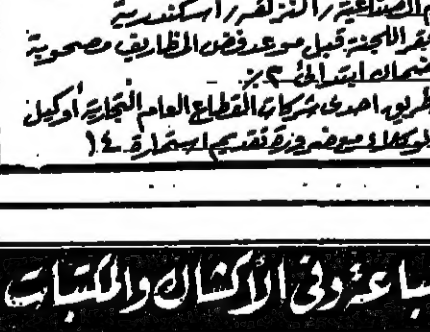 المصناعية / النزهة / اسكندرية
بمقر اللجنة قبل موعد فض المظاريف مصحوبة
ضمان ابتدائى ٢٪ -
طريق احدى شركات القطاع العام التجارية أوكيل
لوكلاء مع ضرورة تقديم استمارة ١٤
باعة وفى الأكشاك والمكتبات